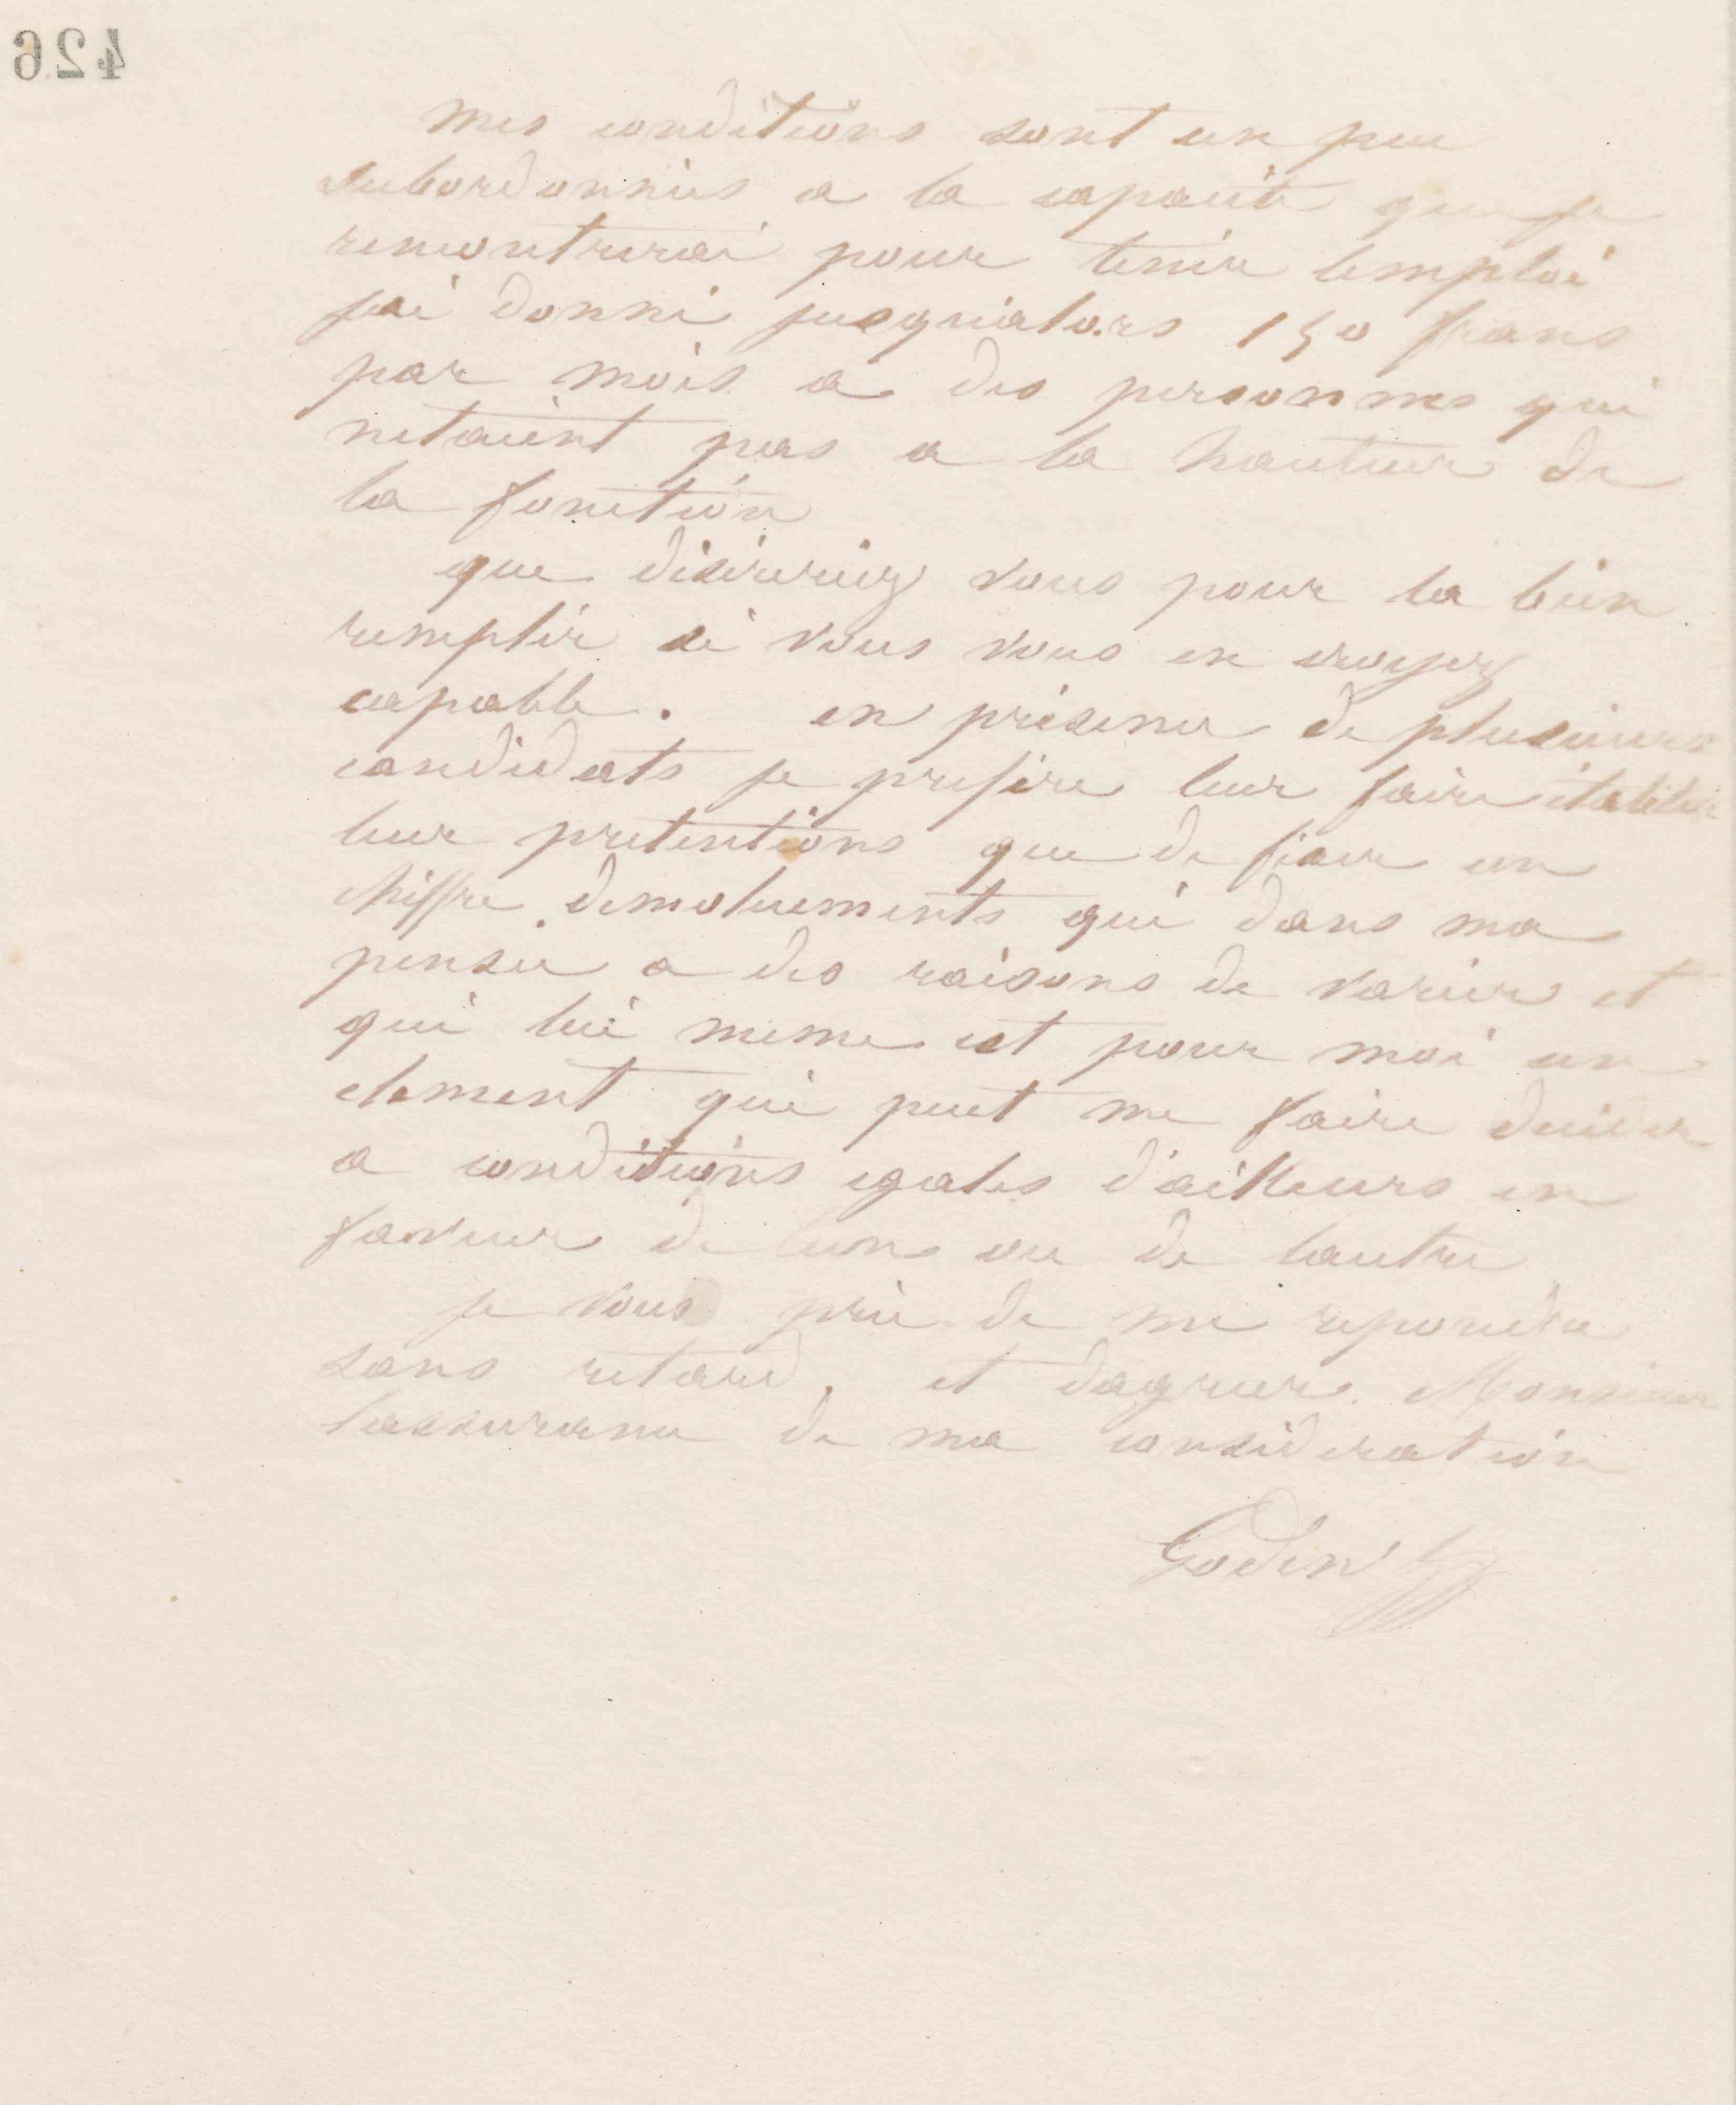 426
mes conditions sont un peu
subordonnées a la capacité que je
rencontrerai pour tenir lemploi
jai donné jusqualors 150 francs
par mois a des personnes qui
netaient pas a la hauteur de
la fonction
que désireriez vous pour la bien
remplir si vous vous en croyez
capable. en présence de plusieurs
candidats je prefère leur faire établir
leur pretentions que de fixer un
chiffre demoluements qui dans ma
pensée a des raisons de varier et
qui lui meme est pour moi un
element qui peut me faire decider
a conditions egales d'ailleurs en
faveur de lun ou de lautre
je vous prie de me repondre
sans retard, et dagreer Monsieur
lassurance de ma consideration
Godin